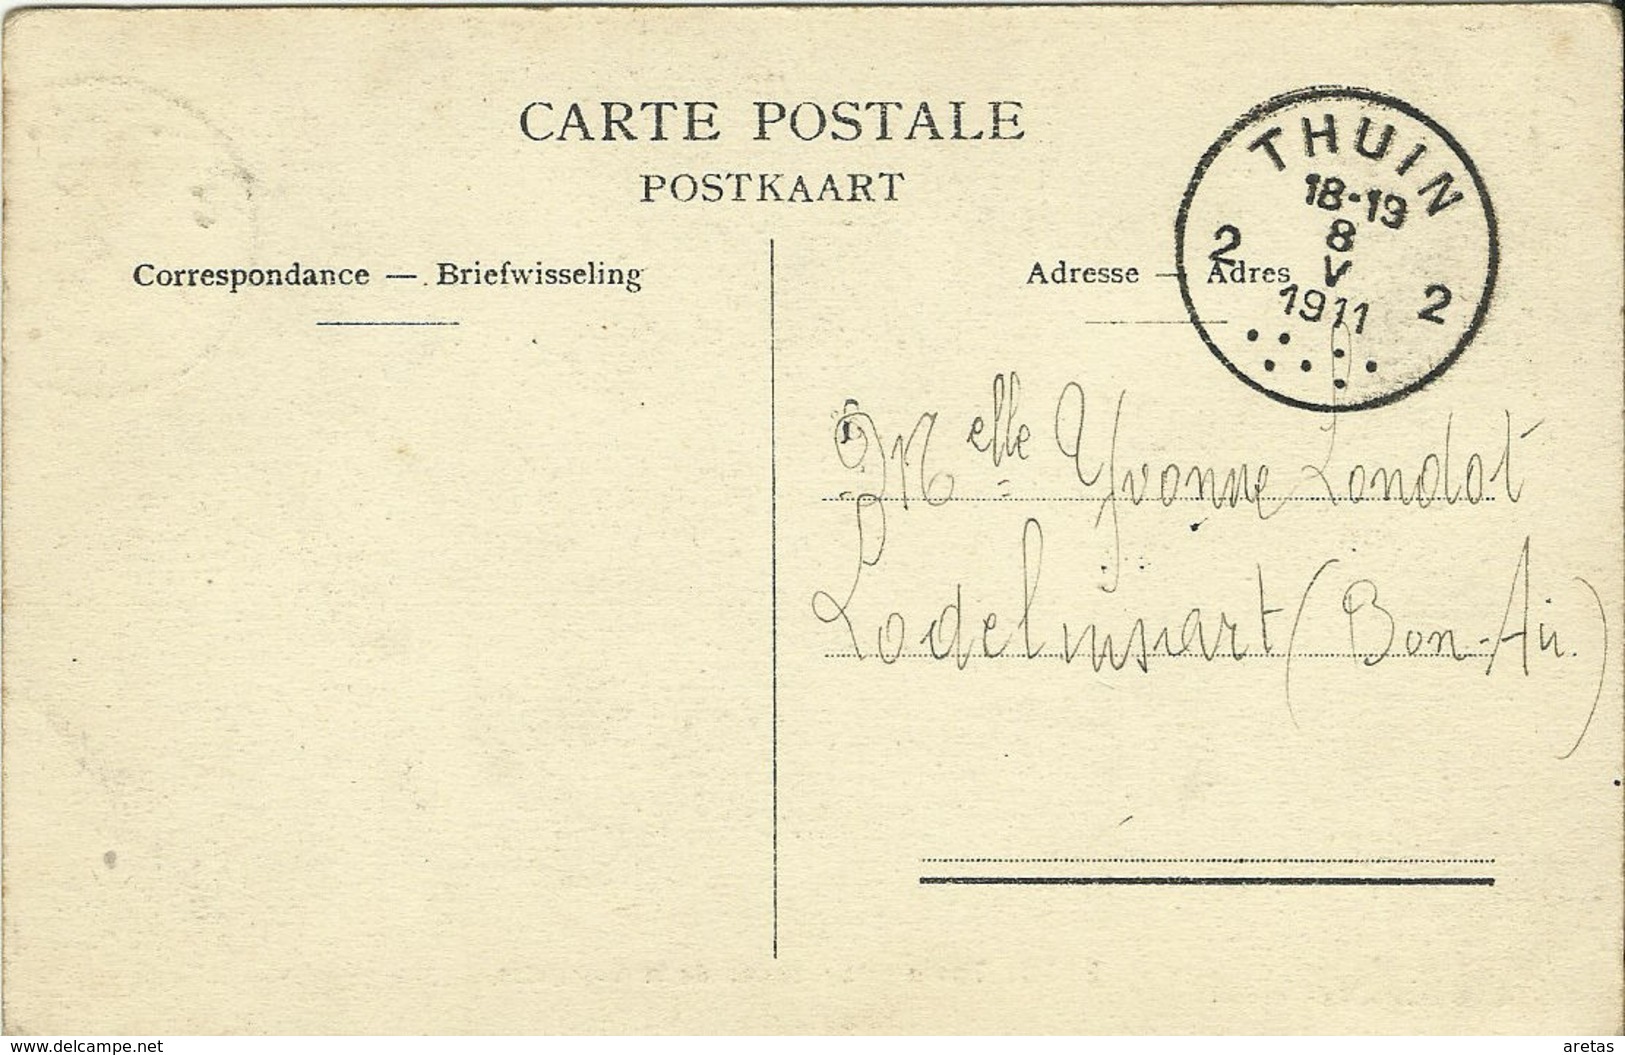 CARTE POSTALE
POSTKAART
Correspondance — Briefwisseling
Adresse — Adres
THUIN
18-19
8
V
1911
2 2
Melle Yvonne Londot
Lodelinsart (Bon-Air.)
www.delcampe.net
aretas